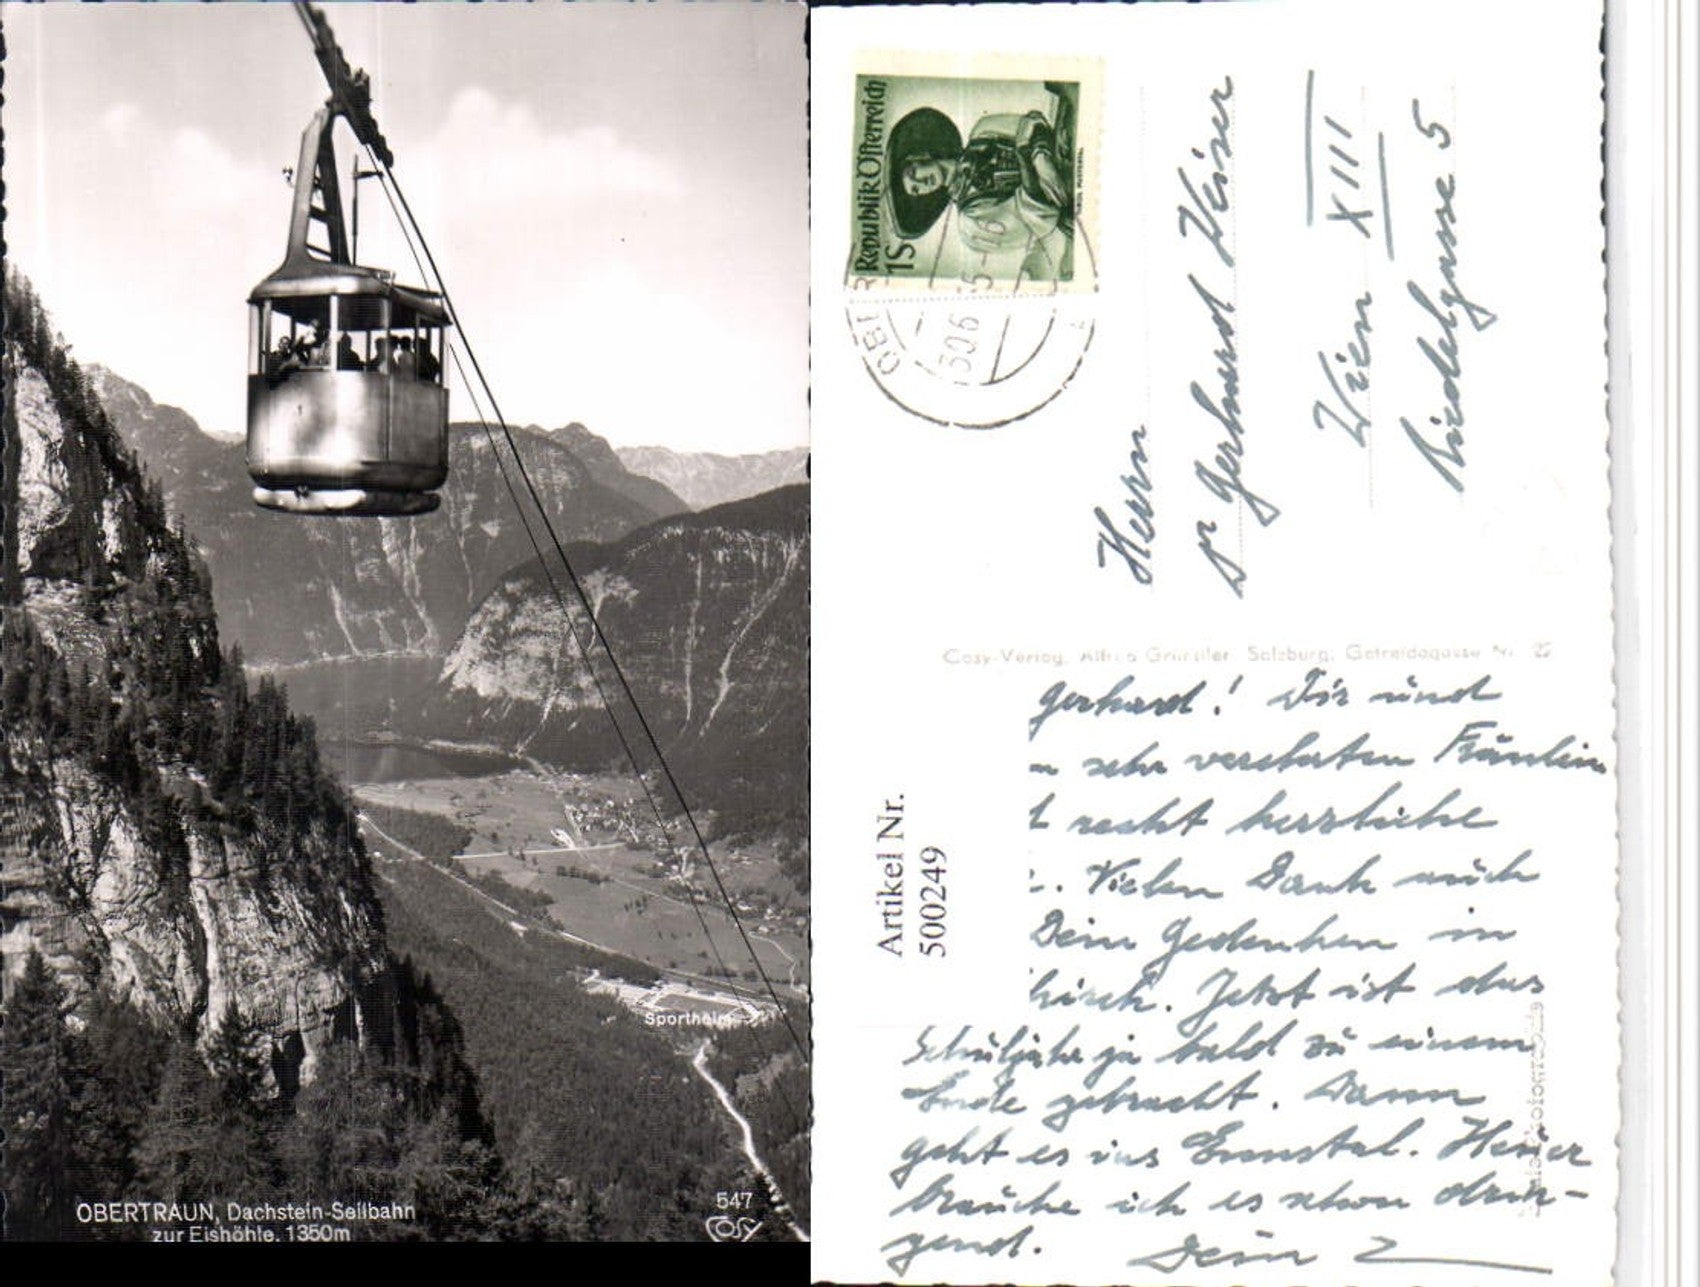 OBERTRAUN, Dachstein-Seilbahn
zur Eishöhle, 1350m
547
COSY
Sportheim
Republik Österreich
1S
30.6.55-16
Herrn
Dr Gerhard Weiser
Wien XIII
Riedelgasse 5
Cosy-Verlag, Alfred Gründler, Salzburg, Getreidegasse Nr. 22
Artikel Nr.
500249
Gerhard! Dir und
n sehr verehrten Fräulein
t recht herzliche
. Vielen Dank auch
Dein Gedenken in
kirch. Jetzt ist das
Schuljahr ja bald zu einem
Ende gebracht. Dann
geht es ins Ennstal. Heuer
brauche ich es schon drin-
gend. Dein